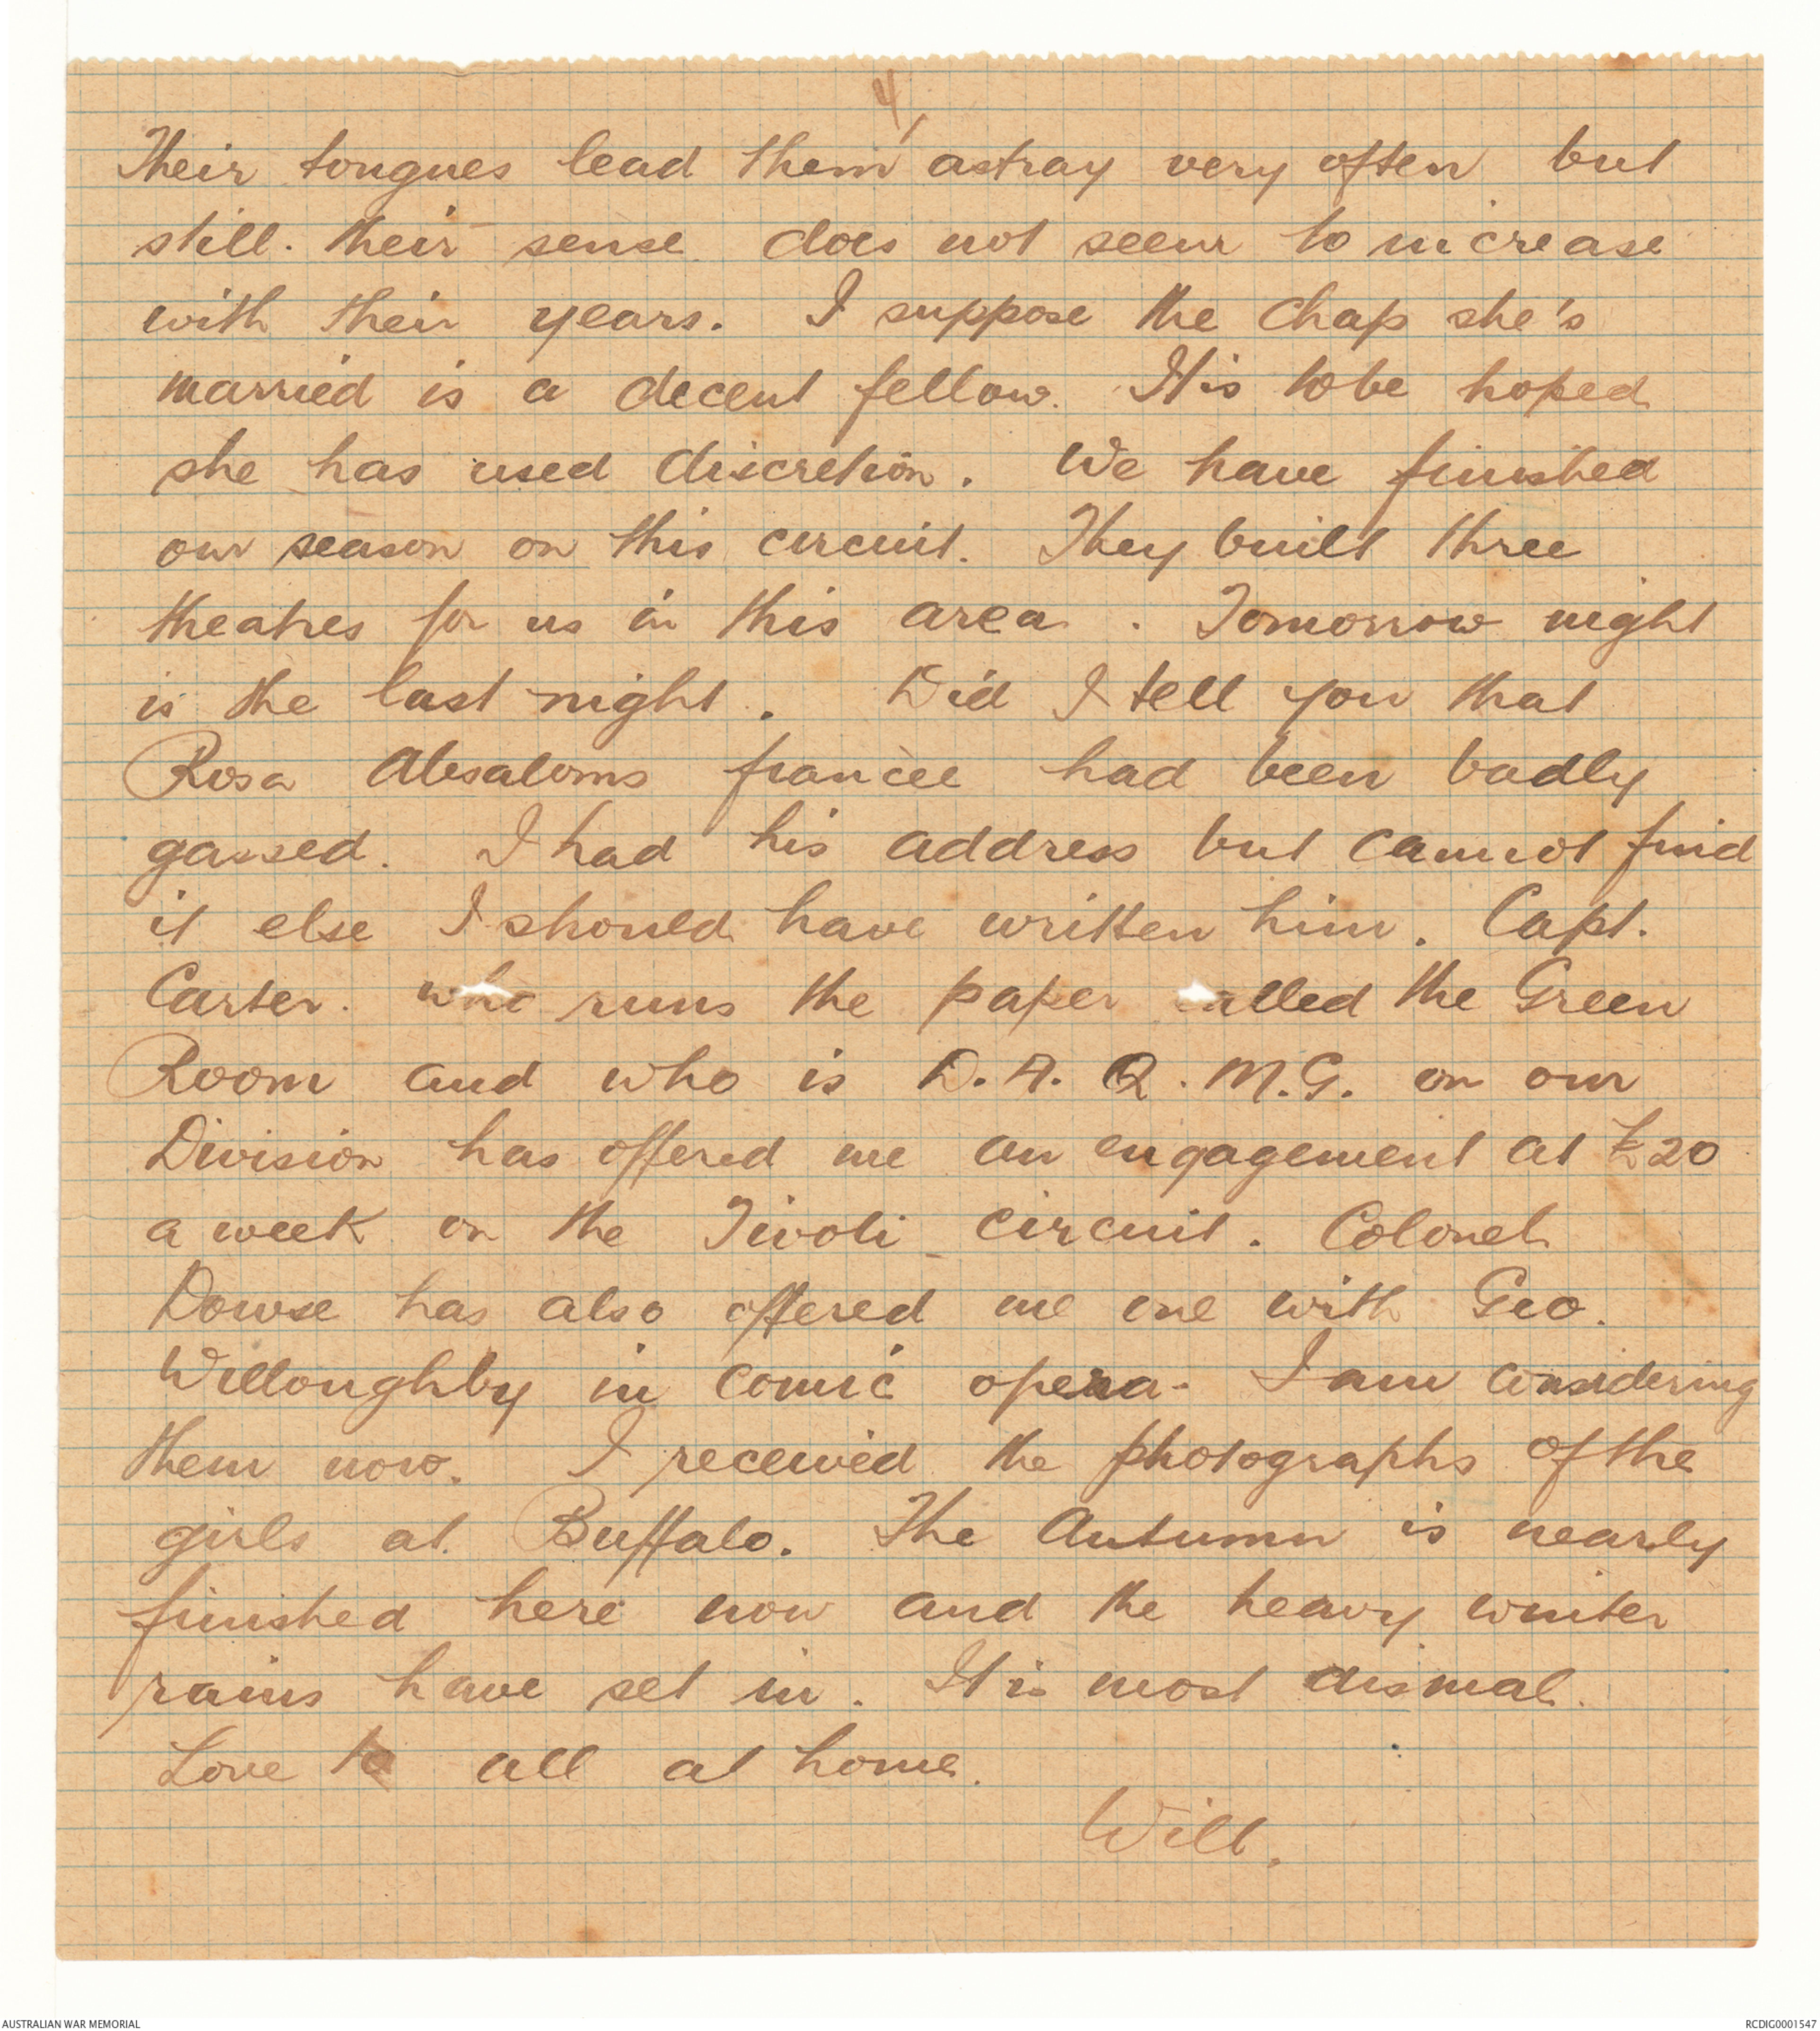 4,
Their tongues lead them astray very often but
still. their sense does not seem to increase
with their years. I suppose the Chap she's
married is a decent fellow. It is to be hoped
she has used discretion. We have finished
our season on this circuit. They built three
theatres for us in this area. Tomorrow night
is the last night. Did I tell you that
Rosa Absaloms francèe had been badly
gassed. I had his address but cannot find
it else I should have written him. Capt.
Carter. who runs the paper called the Green
Room and who is D.A.Q.M.G. on our
Division has offered me an engagement at £20
a week on the Tivoli circuit. Colonel
Dowse has also offered me one with Geo.
Willoughby in Comic opera. I am considering
them now. I received the photographs of the
girls at Buffalo. The Autumn is nearly
finished here now and the heavy winter
rains have set in. It is most dismal.
Love to all at home.
Will.
AUSTRALIAN WAR MEMORIAL
RCDIG0001547